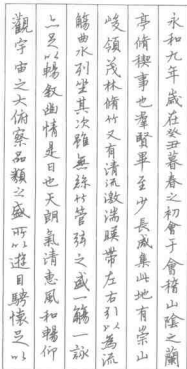 永和九年歲在癸丑暮春之初會于會稽山陰之蘭
亭脩稧事也群賢畢至少長咸集此地有崇山
峻領茂林脩竹又有清流激湍暎帶左右引以為流
觴曲水列坐其次雖無絲竹管弦之盛一觴一詠
亦足以暢敘幽情是日也天朗氣清惠風和暢仰
觀宇宙之大俯察品類之盛所以遊目騁懷足以